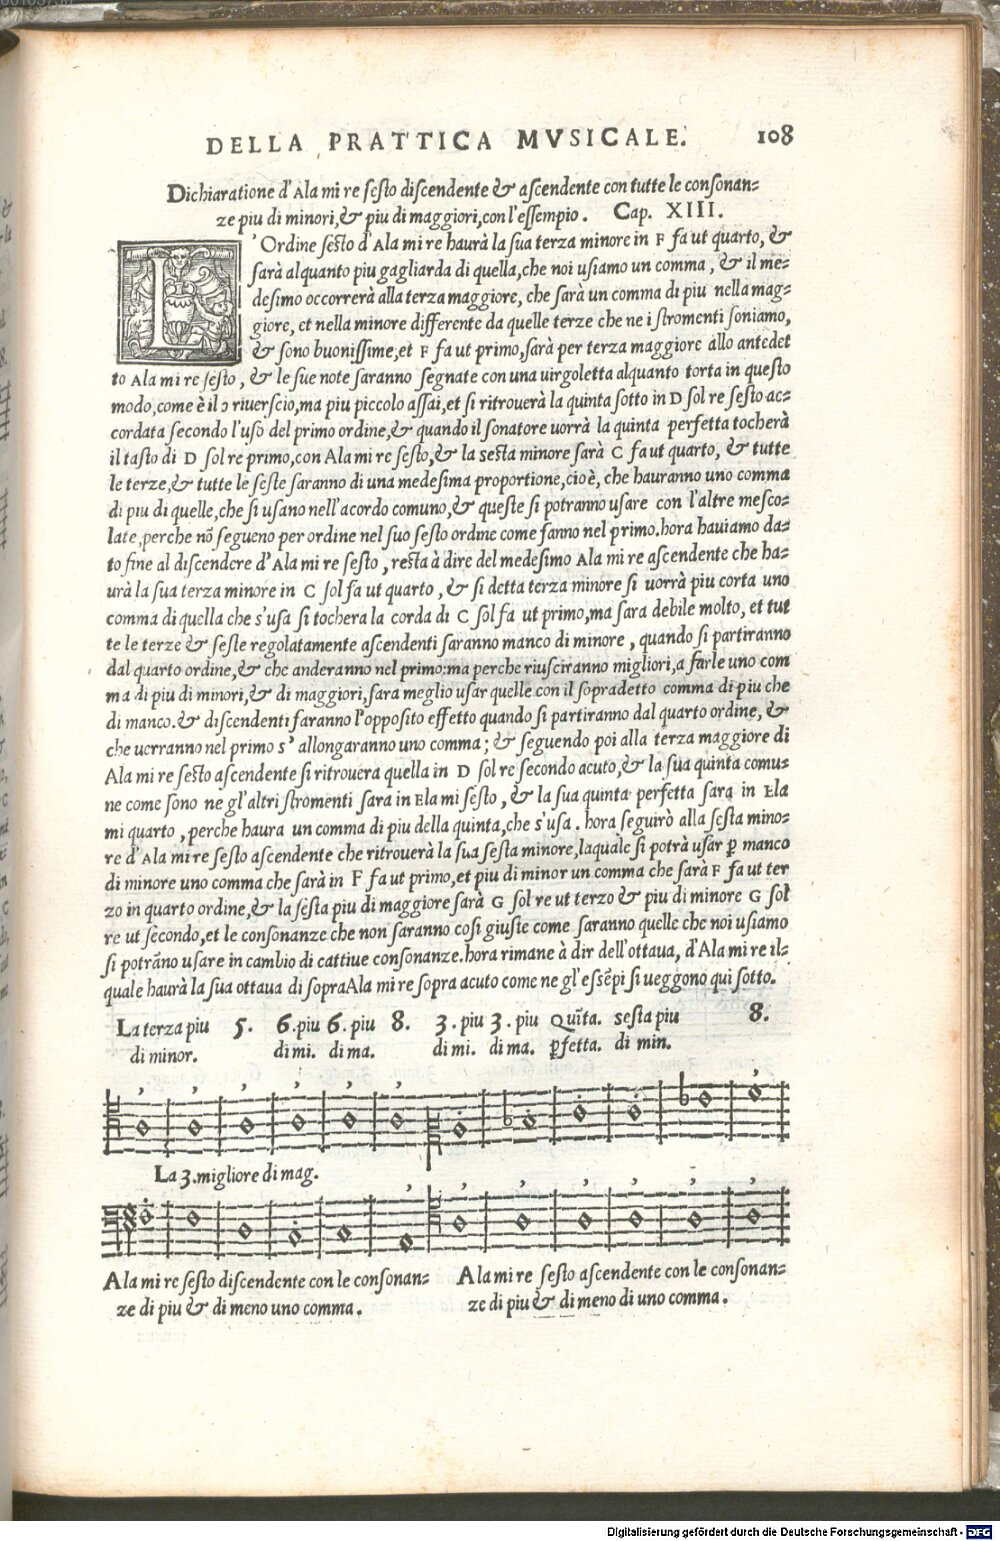 DELLA PRATTICA MVSICALE. 108
Dichiaratione d'Ala mi re sesto discendente & ascendente con tutte le consonan=
ze piu di minori, & piu di maggiori, con l'essempio. Cap. XIII.
L'Ordine sesto d'Ala mi re haurà la sua terza minore in F fa ut quarto, &
sarà alquanto piu gagliarda di quella, che noi usiamo un comma, & il me=
desimo occorrerà alla terza maggiore, che sarà un comma di piu nella mag=
giore, et nella minore differente da quelle terze che ne i stromenti soniamo,
& sono buonissime, et F fa ut primo, sarà per terza maggiore allo antedet
to Ala mi re sesto, & le sue note saranno segnate con una virgoletta alquanto torta in questo
modo, come è il ɔ riuerscio, ma piu piccolo assai, et si ritrouerà la quinta sotto in D sol re sesto ac=
cordata secondo l'uso del primo ordine, & quando il sonatore uorrà la quinta perfetta tocherà
il tasto di D sol re primo, con Ala mi re sesto, & la sesta minore sarà C fa ut quarto, & tutte
le terze, & tutte le seste saranno di una medesima proportione, cioè, che hauranno uno comma
di piu di quelle, che si usano nell'acordo comuno, & queste si potranno usare con l'altre mesco=
late, perche nõ segueno per ordine nel suo sesto ordine come fanno nel primo. hora hauiamo da=
to fine al discendere d'Ala mi re sesto, resta à dire del medesimo Ala mi re ascendente che ha=
urà la sua terza minore in C sol fa ut quarto, & si detta terza minore si uorrà piu corta uno
comma di quella che s'usa si tochera la corda di C sol fa ut primo, ma sara debile molto, et tut
te le terze & seste regolatamente ascendenti saranno manco di minore, quando si partiranno
dal quarto ordine, & che anderanno nel primo: ma perche riusciranno migliori, a farle uno com
ma di piu di minori, & di maggiori, sara meglio usar quelle con il sopradetto comma di piu che
di manco. & discendenti faranno l'opposito effetto quando si partiranno dal quarto ordine, &
che uerranno nel primo s'allongaranno uno comma; & seguendo poi alla terza maggiore di
Ala mi re sesto ascendente si ritrouera quella in D sol re secondo acuto, & la sua quinta comu=
ne come sono ne gl'altri stromenti sara in Ela mi sesto, & la sua quinta perfetta sara in Ela
mi quarto, perche haura un comma di piu della quinta, che s'usa. hora seguirò alla sesta mino=
re d'Ala mi re sesto ascendente che ritrouerà la sua sesta minore, laquale si potrà usar ꝑ manco
di minore uno comma che sarà in F fa ut primo, et piu di minor un comma che sarà F fa ut ter
zo in quarto ordine, & la sesta piu di maggiore sarà G sol re ut terzo & piu di minore G sol
re ut secondo, et le consonanze che non saranno cosi giuste come saranno quelle che noi usiamo
si potrãno usare in cambio di cattiue consonanze. hora rimane à dir dell'ottaua, d'Ala mi re il=
quale haurà la sua ottaua di sopra Ala mi re sopra acuto come ne gl'essẽpi si ueggono qui sotto.
La terza piu 5. 6. piu 6. piu 8. 3. piu 3. piu Quĩta. sesta piu 8.
di minor. di mi. di ma. di mi. di ma. ꝑfetta. di min.
La 3. migliore di mag.
Ala mi re sesto discendente con le consonan= Ala mi re sesto ascendente con le consonan=
ze di piu & di meno uno comma. ze di piu & di meno di uno comma.
Digitalisierung gefördert durch die Deutsche Forschungsgemeinschaft - DFG